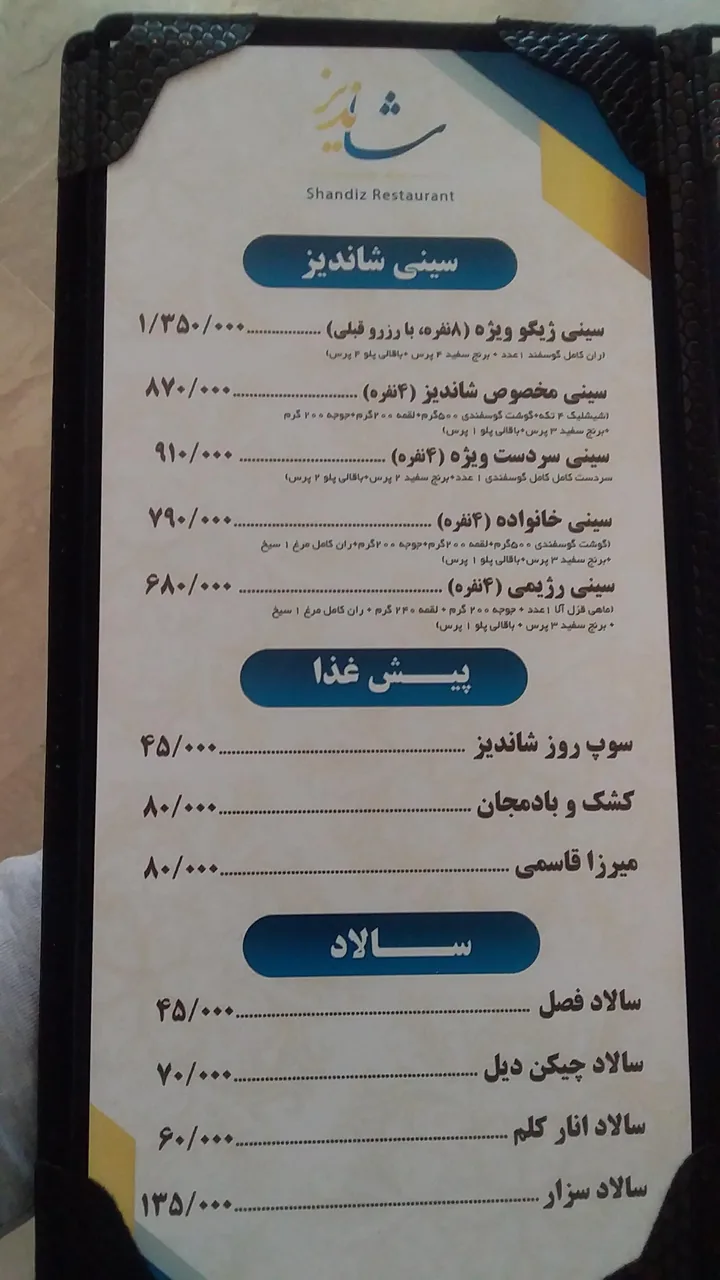 شاندیز
Shandiz Restaurant
سینی شاندیز
سینی ژیگو ویژه (۸نفره، با رزرو قبلی) .................. ۱/۳۵۰/۰۰۰
(ران کامل گوسفند ۱عدد + برنج سفید ۴ پرس +باقالی پلو ۴ پرس)
سینی مخصوص شاندیز (۴نفره) .................. ۸۷۰/۰۰۰
(شیشلیک ۴ تکه+گوشت گوسفندی ۵۰۰گرم+لقمه ۲۰۰گرم+جوجه ۲۰۰ گرم
+برنج سفید ۳ پرس+باقالی پلو ۱ پرس)
سینی سردست ویژه (۴نفره) .................. ۹۱۰/۰۰۰
سردست کامل گوسفندی ۱ عدد+برنج سفید ۲ پرس+باقالی پلو ۲ پرس)
سینی خانواده (۴نفره) .................. ۷۹۰/۰۰۰
(گوشت گوسفندی ۵۰۰گرم+لقمه ۲۰۰گرم+جوجه ۲۰۰گرم+ران کامل مرغ ۱ سیخ
+برنج سفید ۳ پرس+باقالی پلو ۱ پرس)
سینی رژیمی (۴نفره) .................. ۶۸۰/۰۰۰
(ماهی قزل آلا ۱عدد + جوجه ۲۰۰ گرم + لقمه ۲۴۰ گرم + ران کامل مرغ ۱ سیخ
+ برنج سفید ۳ پرس + باقالی پلو ۱ پرس)
پیش غذا
سوپ روز شاندیز .................. ۴۵/۰۰۰
کشک و بادمجان .................. ۸۰/۰۰۰
میرزا قاسمی .................. ۸۰/۰۰۰
سالاد
سالاد فصل .................. ۴۵/۰۰۰
سالاد چیکن دیل .................. ۷۰/۰۰۰
سالاد انار کلم .................. ۶۰/۰۰۰
سالاد سزار .................. ۱۳۵/۰۰۰